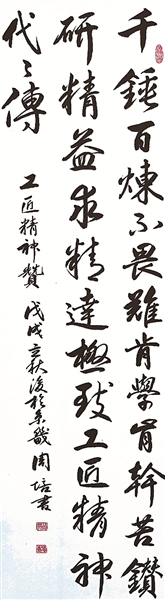 千錘百煉不畏難肯學肯幹苦鑽
研精益求精達極致工匠精神
代々傳
工匠精神贊 戊戌立秋後於京畿 周培書